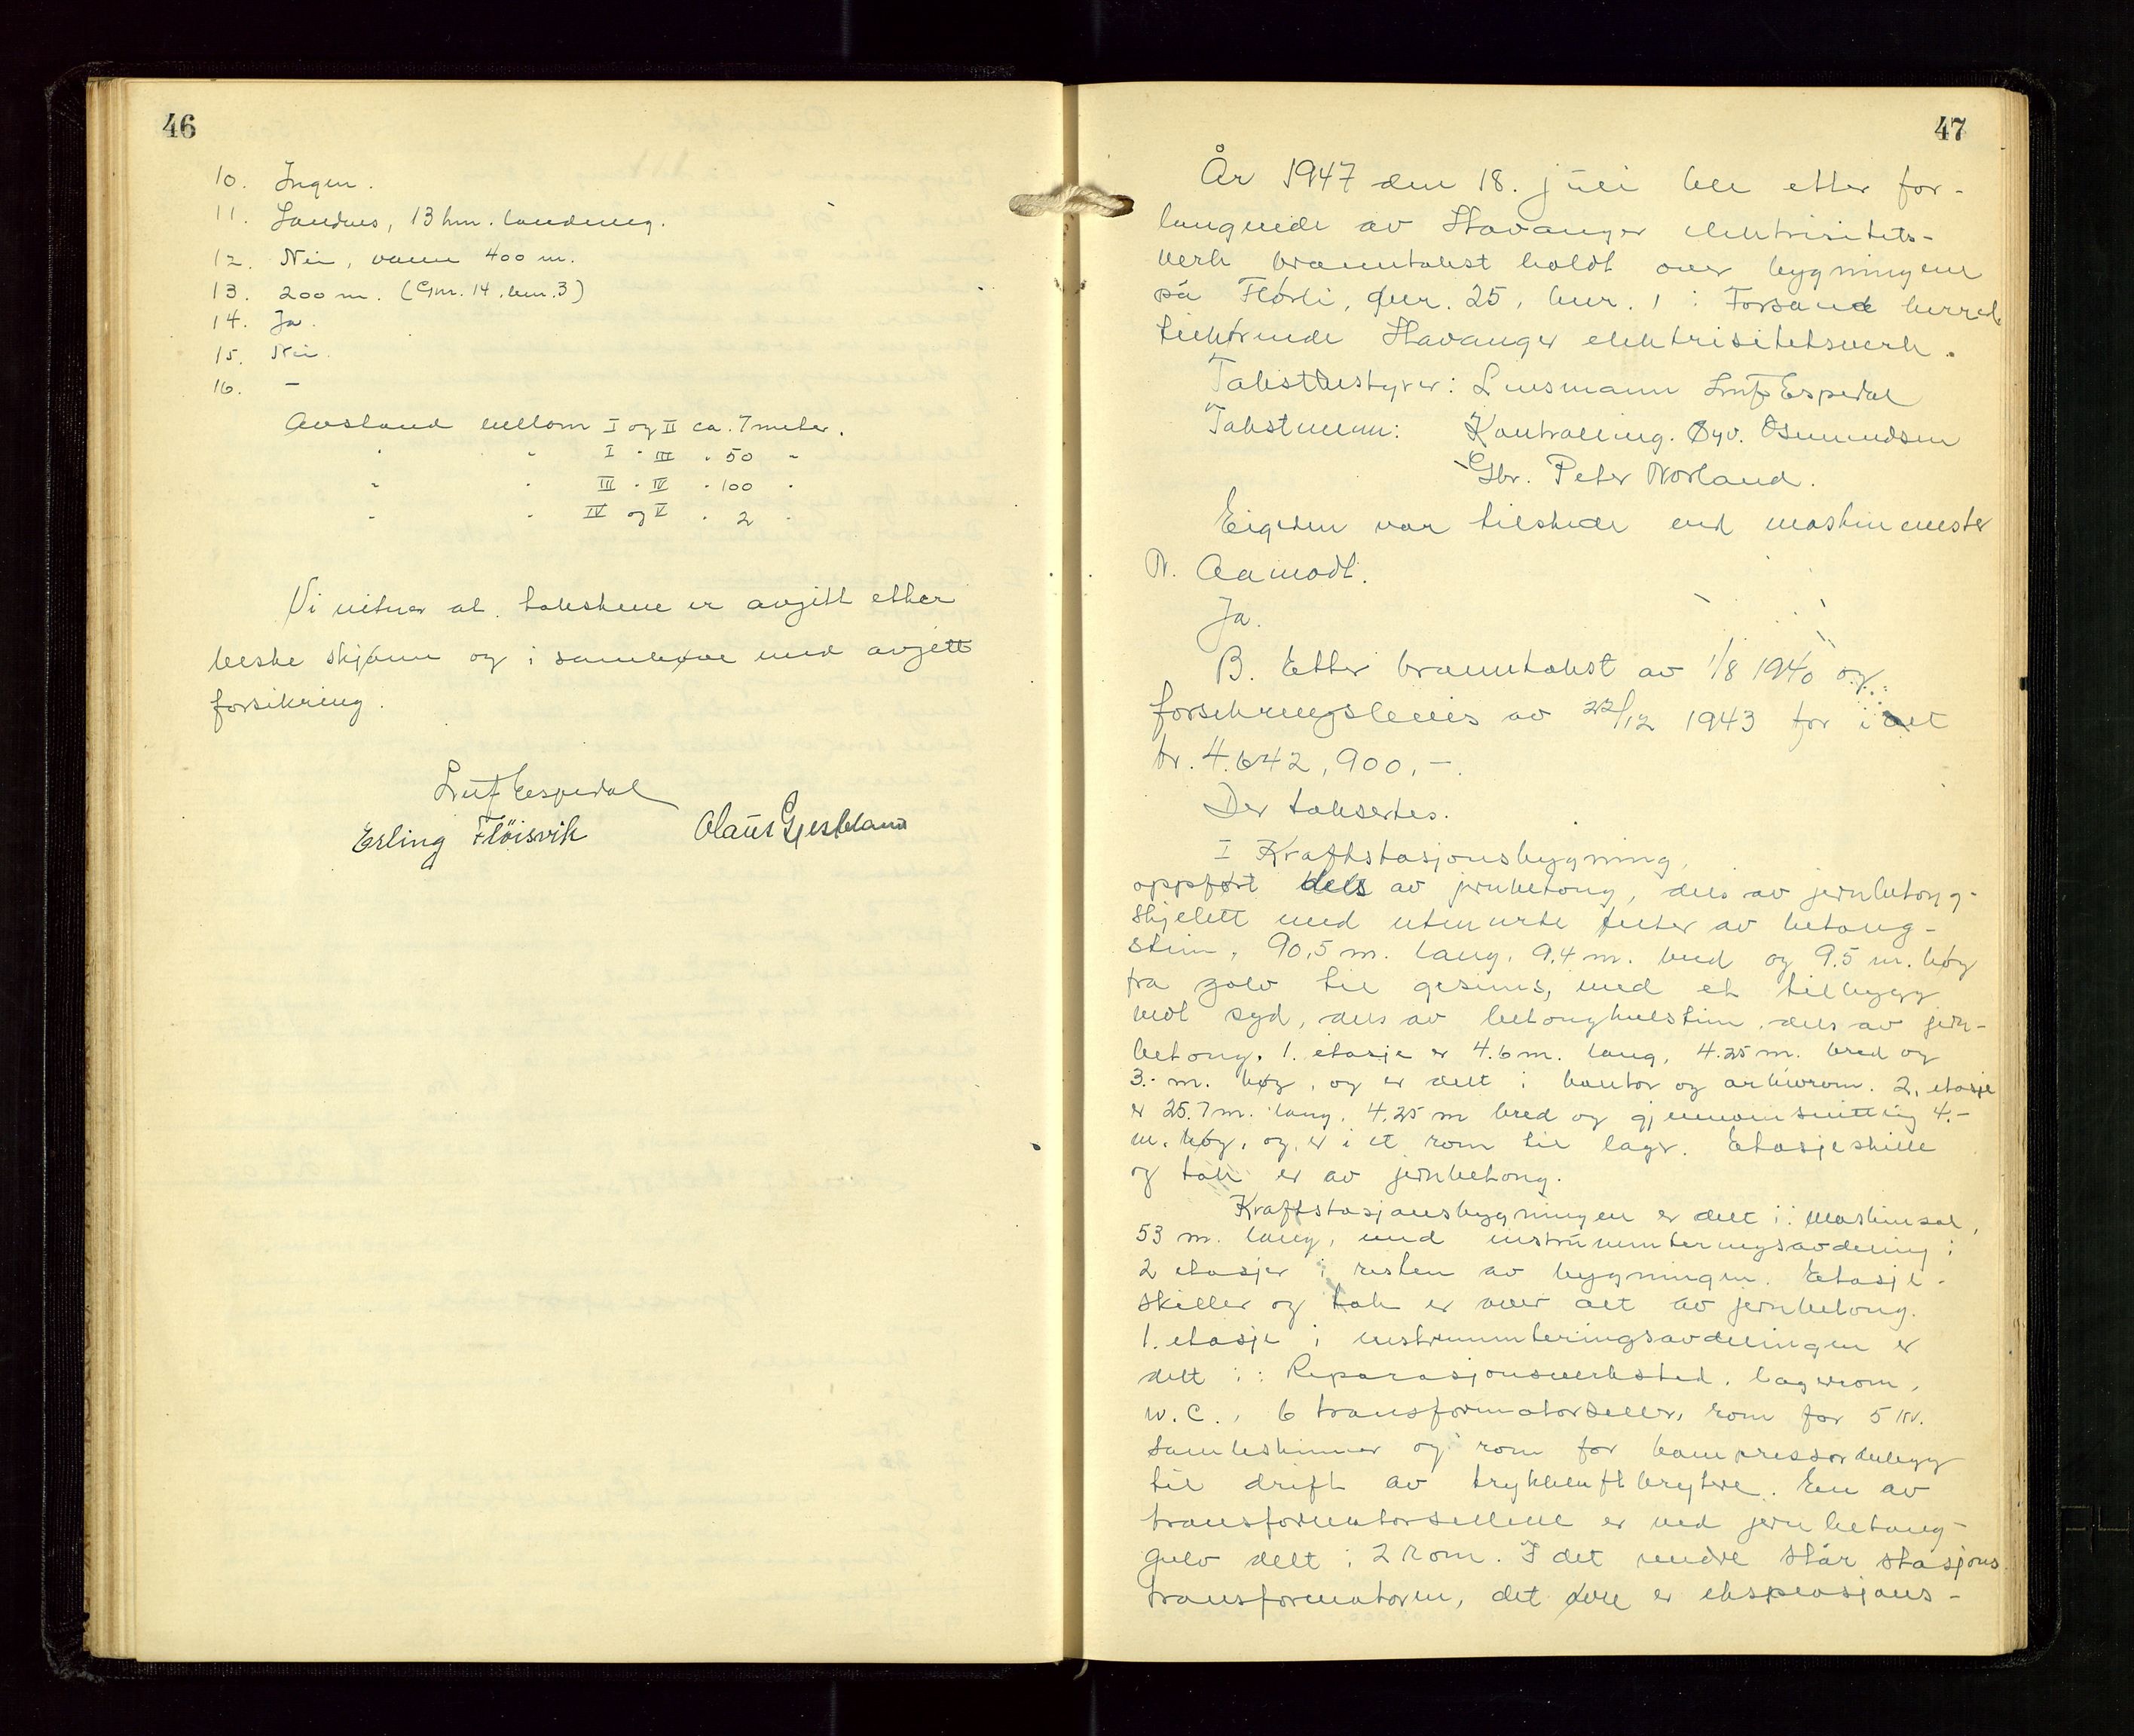 46
10. Ingen.
11. Sandnes, 13 km. landveg.
12. Nei, vann 400 m.
13. 200 m. (Gnr. 14, bnr. 3)
14. Ja.
15. Nei.
16. –
Avstand mellom I og II ca. 7 meter.
" " I " III " 50 "
" " III " IV " 100 "
" " IV og V " 2 "
Vi vitner at takstene er avgitt etter
beste skjønn og i samhøve med avgitt
forsikring.
Leif Espedal
Erling Fløisvik Olaus Gjesteland
47
År 1947 den 18. juli ble etter for-
langende av Stavanger elektrisitets-
verk branntakst holdt over bygningene
på Flørli, gnr. 25, bnr. 1 i Forsand herred
tilhørende Stavanger elektrisitetsverk.
Takstbestyrer: Lensmann Leif Espedal
Takstmenn: Kontrolling. Øyv. Osmundsen
Gbr. Peter Norland.
Eigeren var tilstede ved maskinmester
N. Aamodt.
Ja.
B. Etter branntakst av 1/8 1940 og
forsikringsbevis av 22/12 1943 for i alt
kr. 4.642,900,-.
Der takseres.
I Kraftstasjonsbygning,
oppført dels av jernbetong, dels av jernbetong-
skjelett med utmurte felter av betong-
stein, 90,5 m. lang, 9,4 m. bred og 9.5 m. høg
fra golv til gesims, med et tilbygg
mot syd, dels av betonghulstein, dels av jern-
betong. 1. etasje er 4.6 m. lang, 4.25 m. bred og
3.- m. høg, og er delt i kontor og arkivrom. 2. etasje
er 25.7 m. lang, 4,25 m bred og gjennomsnittlig 4.-
m. høg, og er i et rom til lager. Etasjeskille
og tak er av jernbetong.
Kraftstasjonsbygningen er delt i: Maskinsal,
53 m. lang, med instrumenteringsavdeling i
2 etasjer i resten av bygningen. Etasje-
skiller og tak er over alt av jernbetong.
1. etasje i instrumenteringsavdelingen er
delt i: Reparasjonsverksted, lagerrom,
W.C., 6 transformatorceller, rom for 5 KV.
samleskinner og rom for kompressoranlegg
til drift av trykkluftbrytere. En av
transformatorcellene er ved jernbetong-
gulv delt i 2 rom. I det nedre står stasjons-
transformatoren, det øvre er eksplosjons-